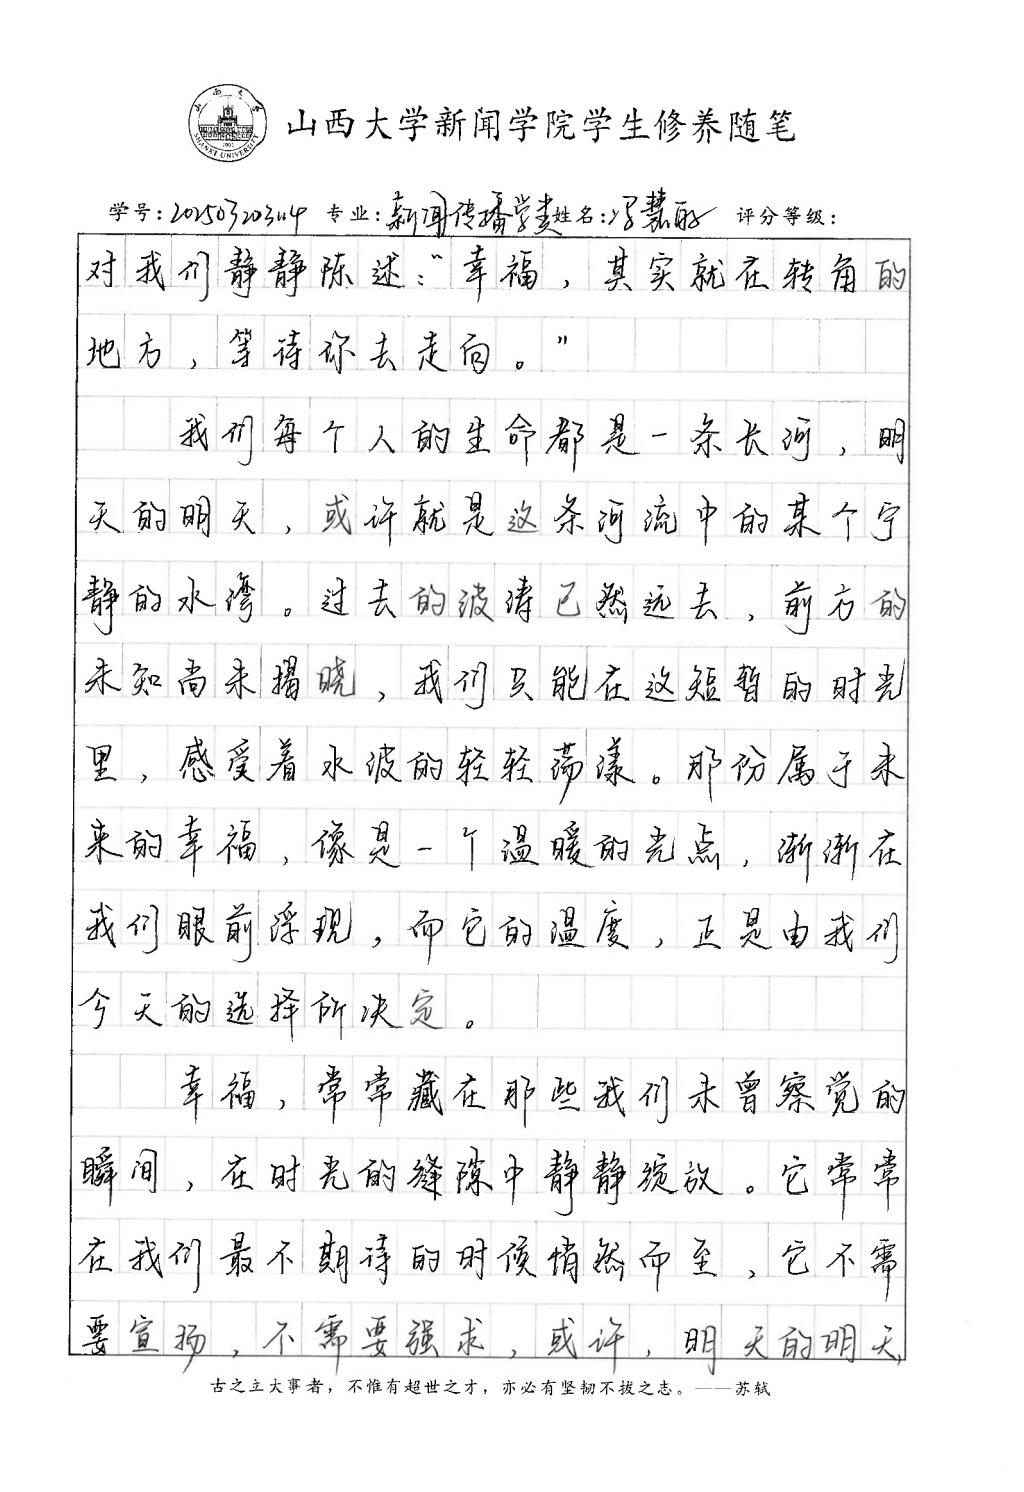 山西大学新闻学院学生修养随笔
学号: 专业:新闻传播学类 姓名:冯慧 评分等级:
对我们静静陈述:“幸福,其实就在转角的
地方,等待你去走向。”
我们每个人的生命都是一条长河,明
天的明天,或许就是这条河流中的某个宁
静的水湾。过去的波涛已然远去,前方的
未知尚未揭晓,我们只能在这短暂的时光
里,感受着水波的轻轻荡漾。那份属于未
来的幸福,像是一个温暖的光点,渐渐在
我们眼前浮现,而它的温度,正是由我们
今天的选择所决定。
幸福,常常藏在那些我们未曾察觉的
瞬间,在时光的缝隙中静静绽放。它常常
在我们最不期待的时候悄然而至,它不需
要宣扬,不需要强求,或许,明天的明天,
古之立大事者,不惟有超世之才,亦必有坚韧不拔之志。——苏轼